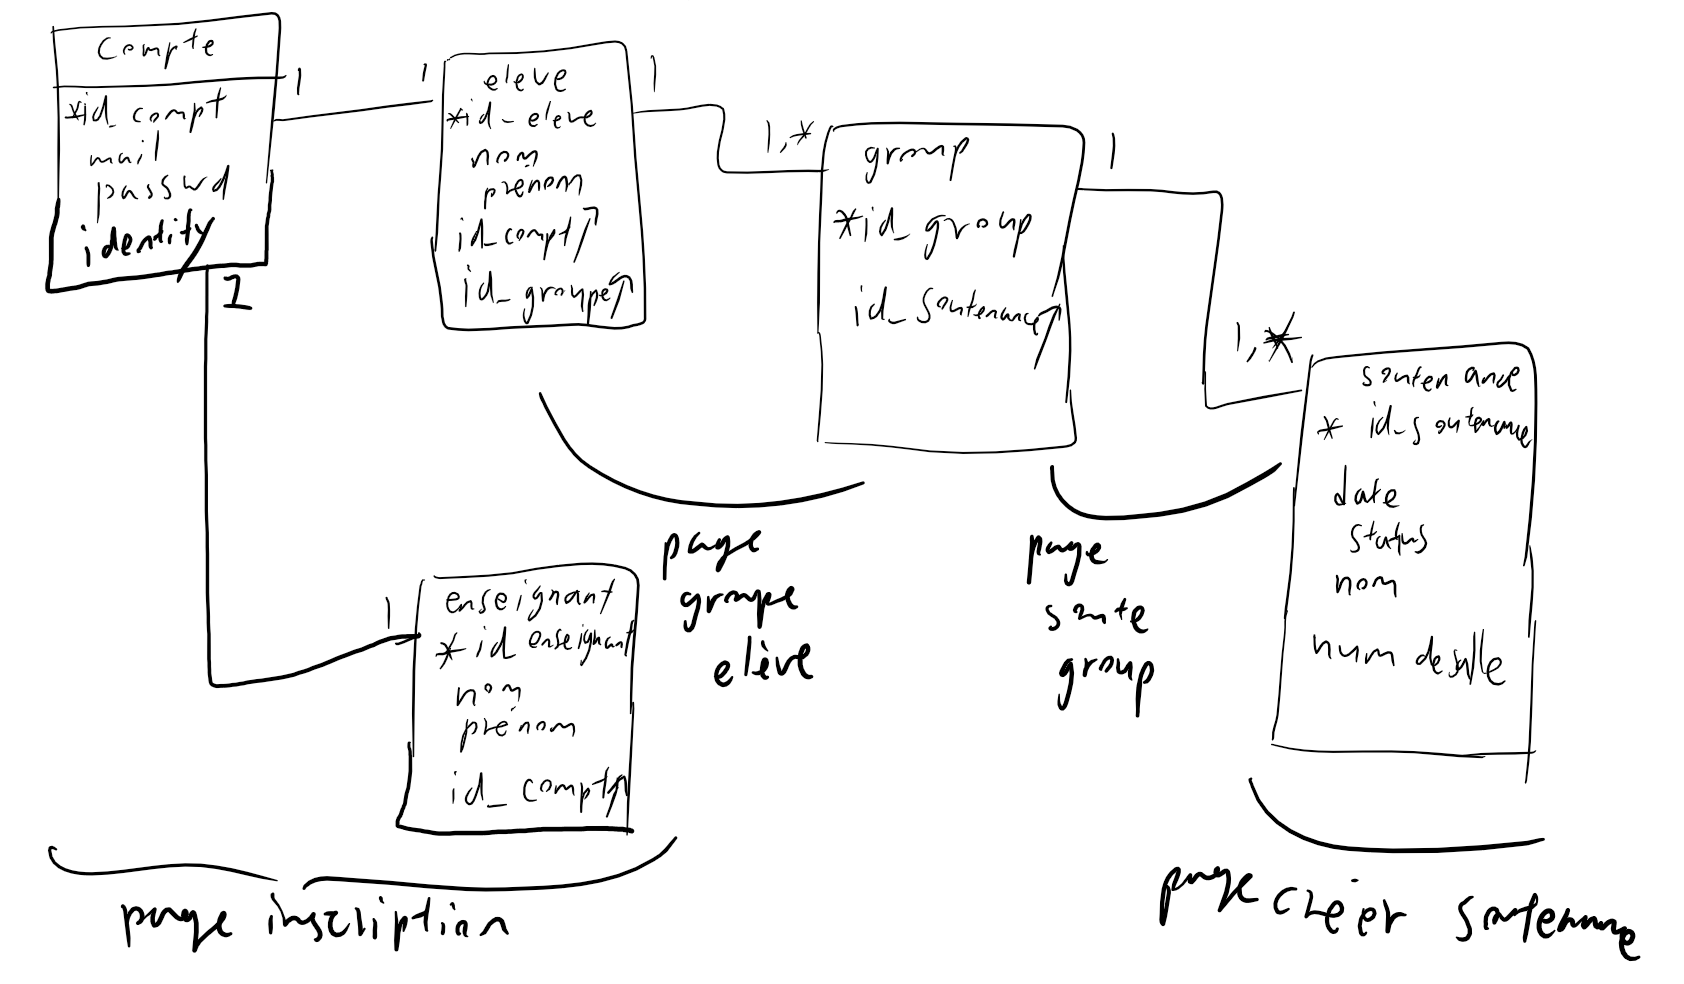 Compte
*id_compt
mail
passwd
identity
1
1
1
eleve
*id-eleve
nom
prenom
id_compt↗
id_groupe↗
1
1,*
group
*id_group
id_soutenance↗
1
1,*
soutenance
* id_soutenance
date
status
nom
num de salle
1
enseignant
* id enseignant
nom
prénom
id_compt↗
page
groupe
elève
page
soute
group
page inscription
page créer soutenance